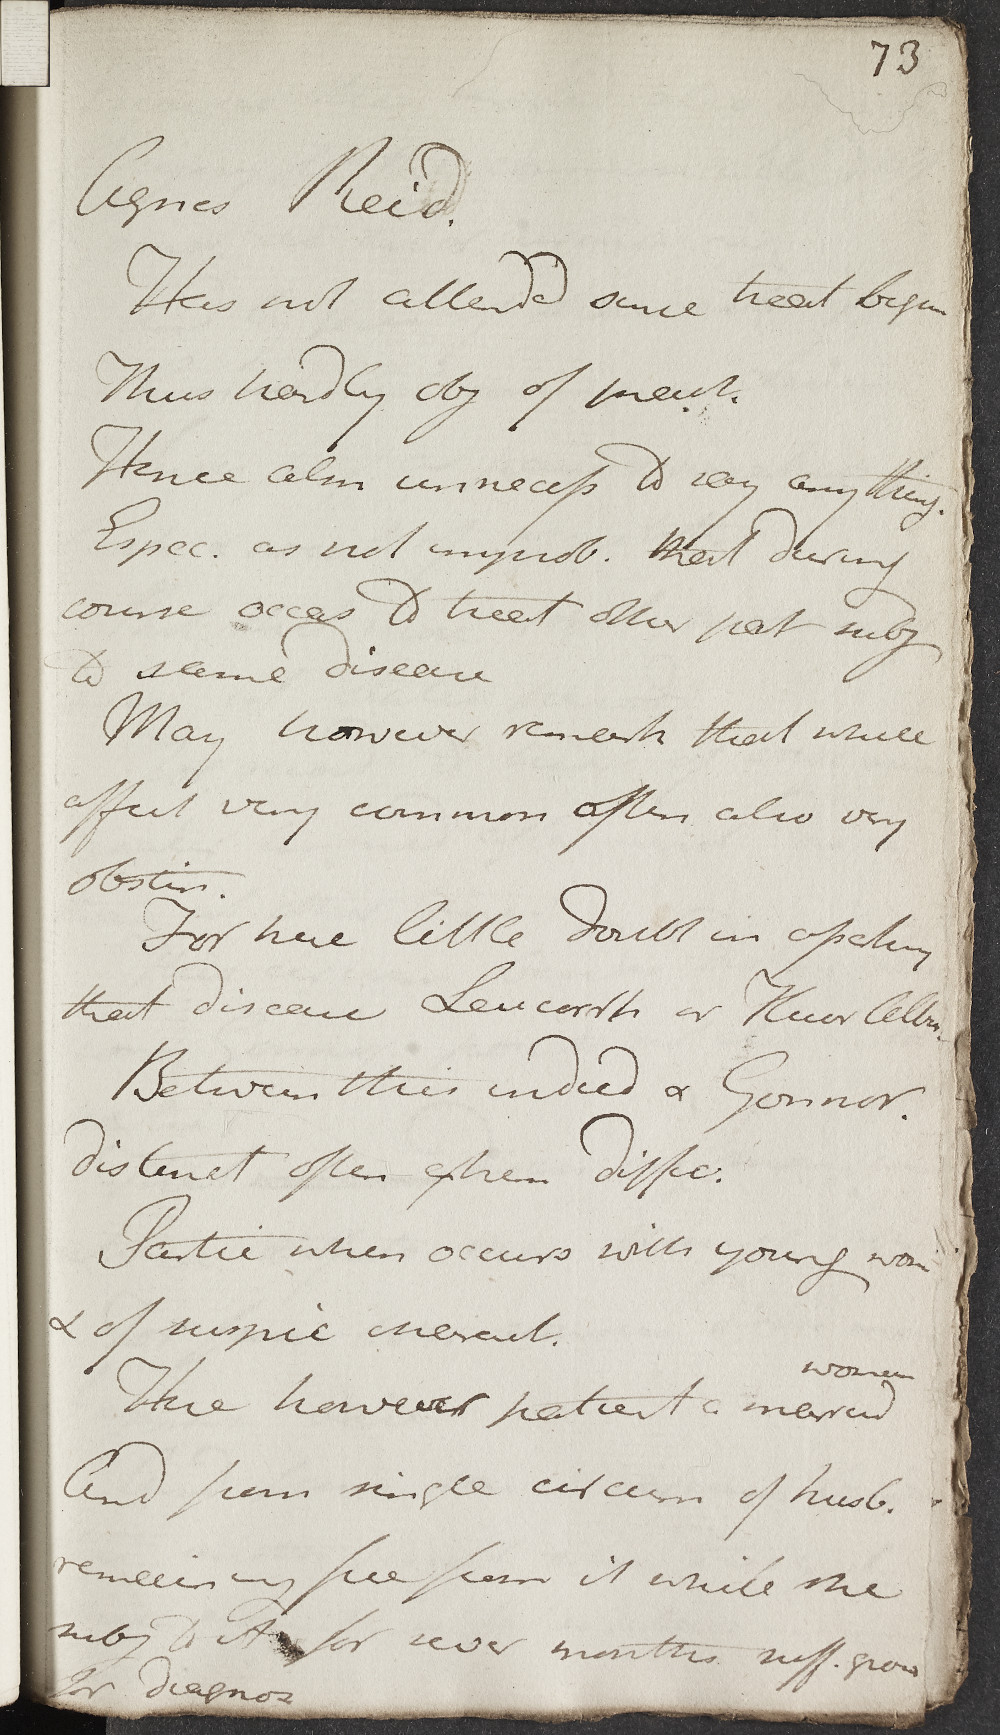 73
Agnes Reid.
Has not attendd since treat begun
Thus hardly obj of pract.
Hence alm unnecess to say any thing.
Espec. as not improb. that during
course occas to treat other pat subj
to same disease
May however remark that while
affect very common often also very
obstin.
For here little doubt in
that disease Leucorrh or Fluor Albu.
Between this indeed & Gonnor.
distinct often diffic.
Partic when occurs with young wom
& of suspic charact.
women
Here however patient a married
And from single circum of husb.
remaining free from it while she
subj to it for sever months suff. groun
for diagnos